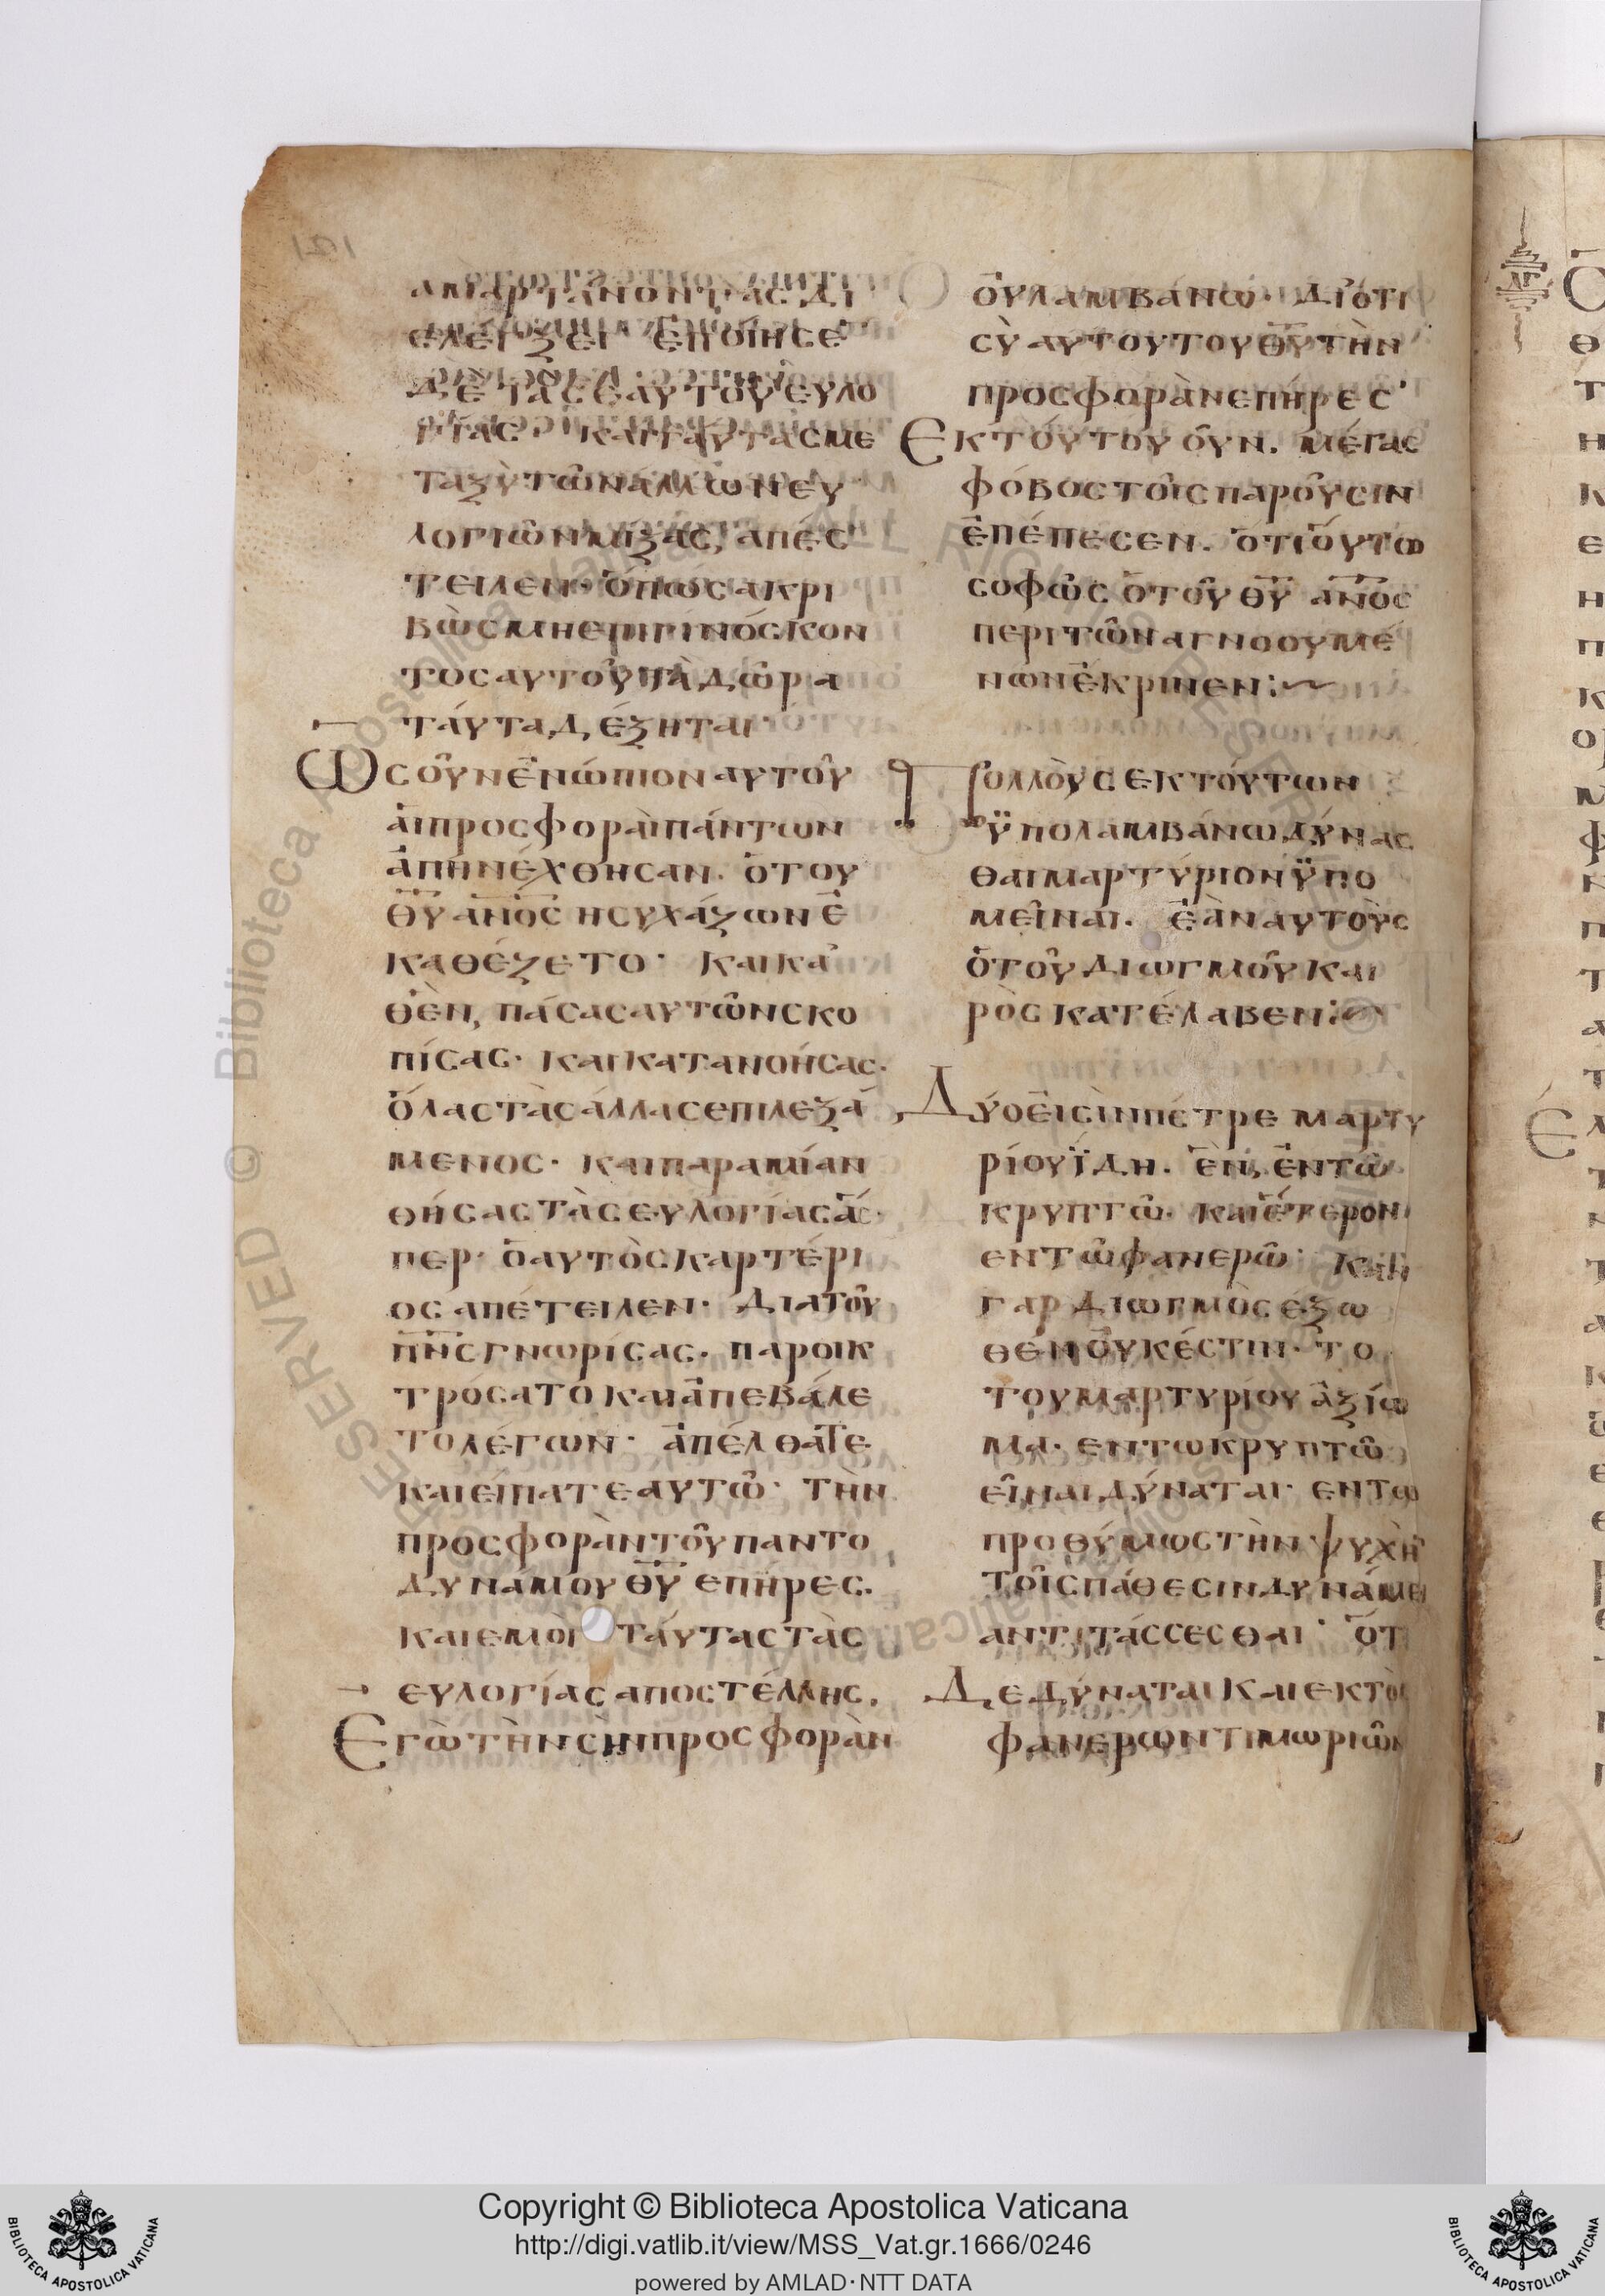 121
ἁμαρτάνοντας δι
ελέγξει· ἐποίησε
δὲ τὰς ἑαυτοῦ ευλο
γίας· καὶ ταύτας με
ταξὺ τῶν άλλων ευ
λογιῶν μίξας, απές
τειλεν· ὅπως ακρι
βῶς μη επιγινόσκον
τος αυτοῦ τὰ δῶρα
τάυτα δέξηται·
Ως οῦν ἐνώπιον αυτοῦ
ἁι προσφοραὶ πάντων
ἀπηνέχθησαν. ὁ του
θ̅υ̅ α̅ν̅ο̅ς̅ ησυχάζων ἐ
καθέζετο· και κα
θὲν, πάσας αυτῶν σκο
πίσας· και κατανοήσας·
ὅλας τὰς άλλας επιλεξά
μενος· και παραμίαν
θήσας τὰς ευλογίας ἅς
περ· ὁ αυτὸς καρτέρι
ος απέτειλεν· Διατοῦ
π̅ν̅ς̅ γνωρίσας· παροικ
τρόσατο και ἀπεβάλε
το λέγων· ἀπέλθατε
και είπατε αυτῶ· τὴν
προσφορὰν τοῦ παντο
δυνάμου θ̅υ̅ επήρες.
και εμοὶ τάυτας τὰς
ευλογίας αποστέλλης.
Εγὼ τὴν σὴν προσφορὰν
ὀυ λαμβάνω· Διότι
σὺ αυτου του θ̅υ̅ τὴν
προσφορὰν επήρες·
Εκ τούτου οῦν. μέγας
φόβος τοῖς παροῦσιν
ἐπέπεσεν. ὅτι ὅυτω
σοφῶς ὁ τοῦ θ̅υ̅ α̅ν̅ο̅ς̅
περὶ τῶν αγνοουμέ
νων ἔκρινεν:~
Πολλὺς εκ τούτων
ϋπολαμβάνω δύνας
θαι μαρτύριον ϋπο
μεῖναι. ἐὰν αυτοὺς
ὁ τοῦ διωγμοῦ και
ρὸς κατέλαβεν:~
Δύο ἐισὶν πέτρε μαρτυ
ρίου ϊδη. ἓν, ἐν τῶ
κρυπτῶ· και ἕτερον
εν τῶ φανερῶ· Κἂν
γαρ διωγμὸς έξω
θεν ὀυκέστιν· τὸ
του μαρτυρίου ἀξίω
μα· εν τω κρυπτῶ
εῖναι δύναται· εν τω
προθύμως τὴν ψυχὴ
τοῖς πάθεσιν δυνάμει
αντιτάσσεσθαι· ὅτι
Δε δύναται και εκτὸς
φανερων τιμωριῶν
Copyright © Biblioteca Apostolica Vaticana
http://digi.vatlib.it/view/MSS_Vat.gr.1666/0246
powered by AMLAD·NTT DATA